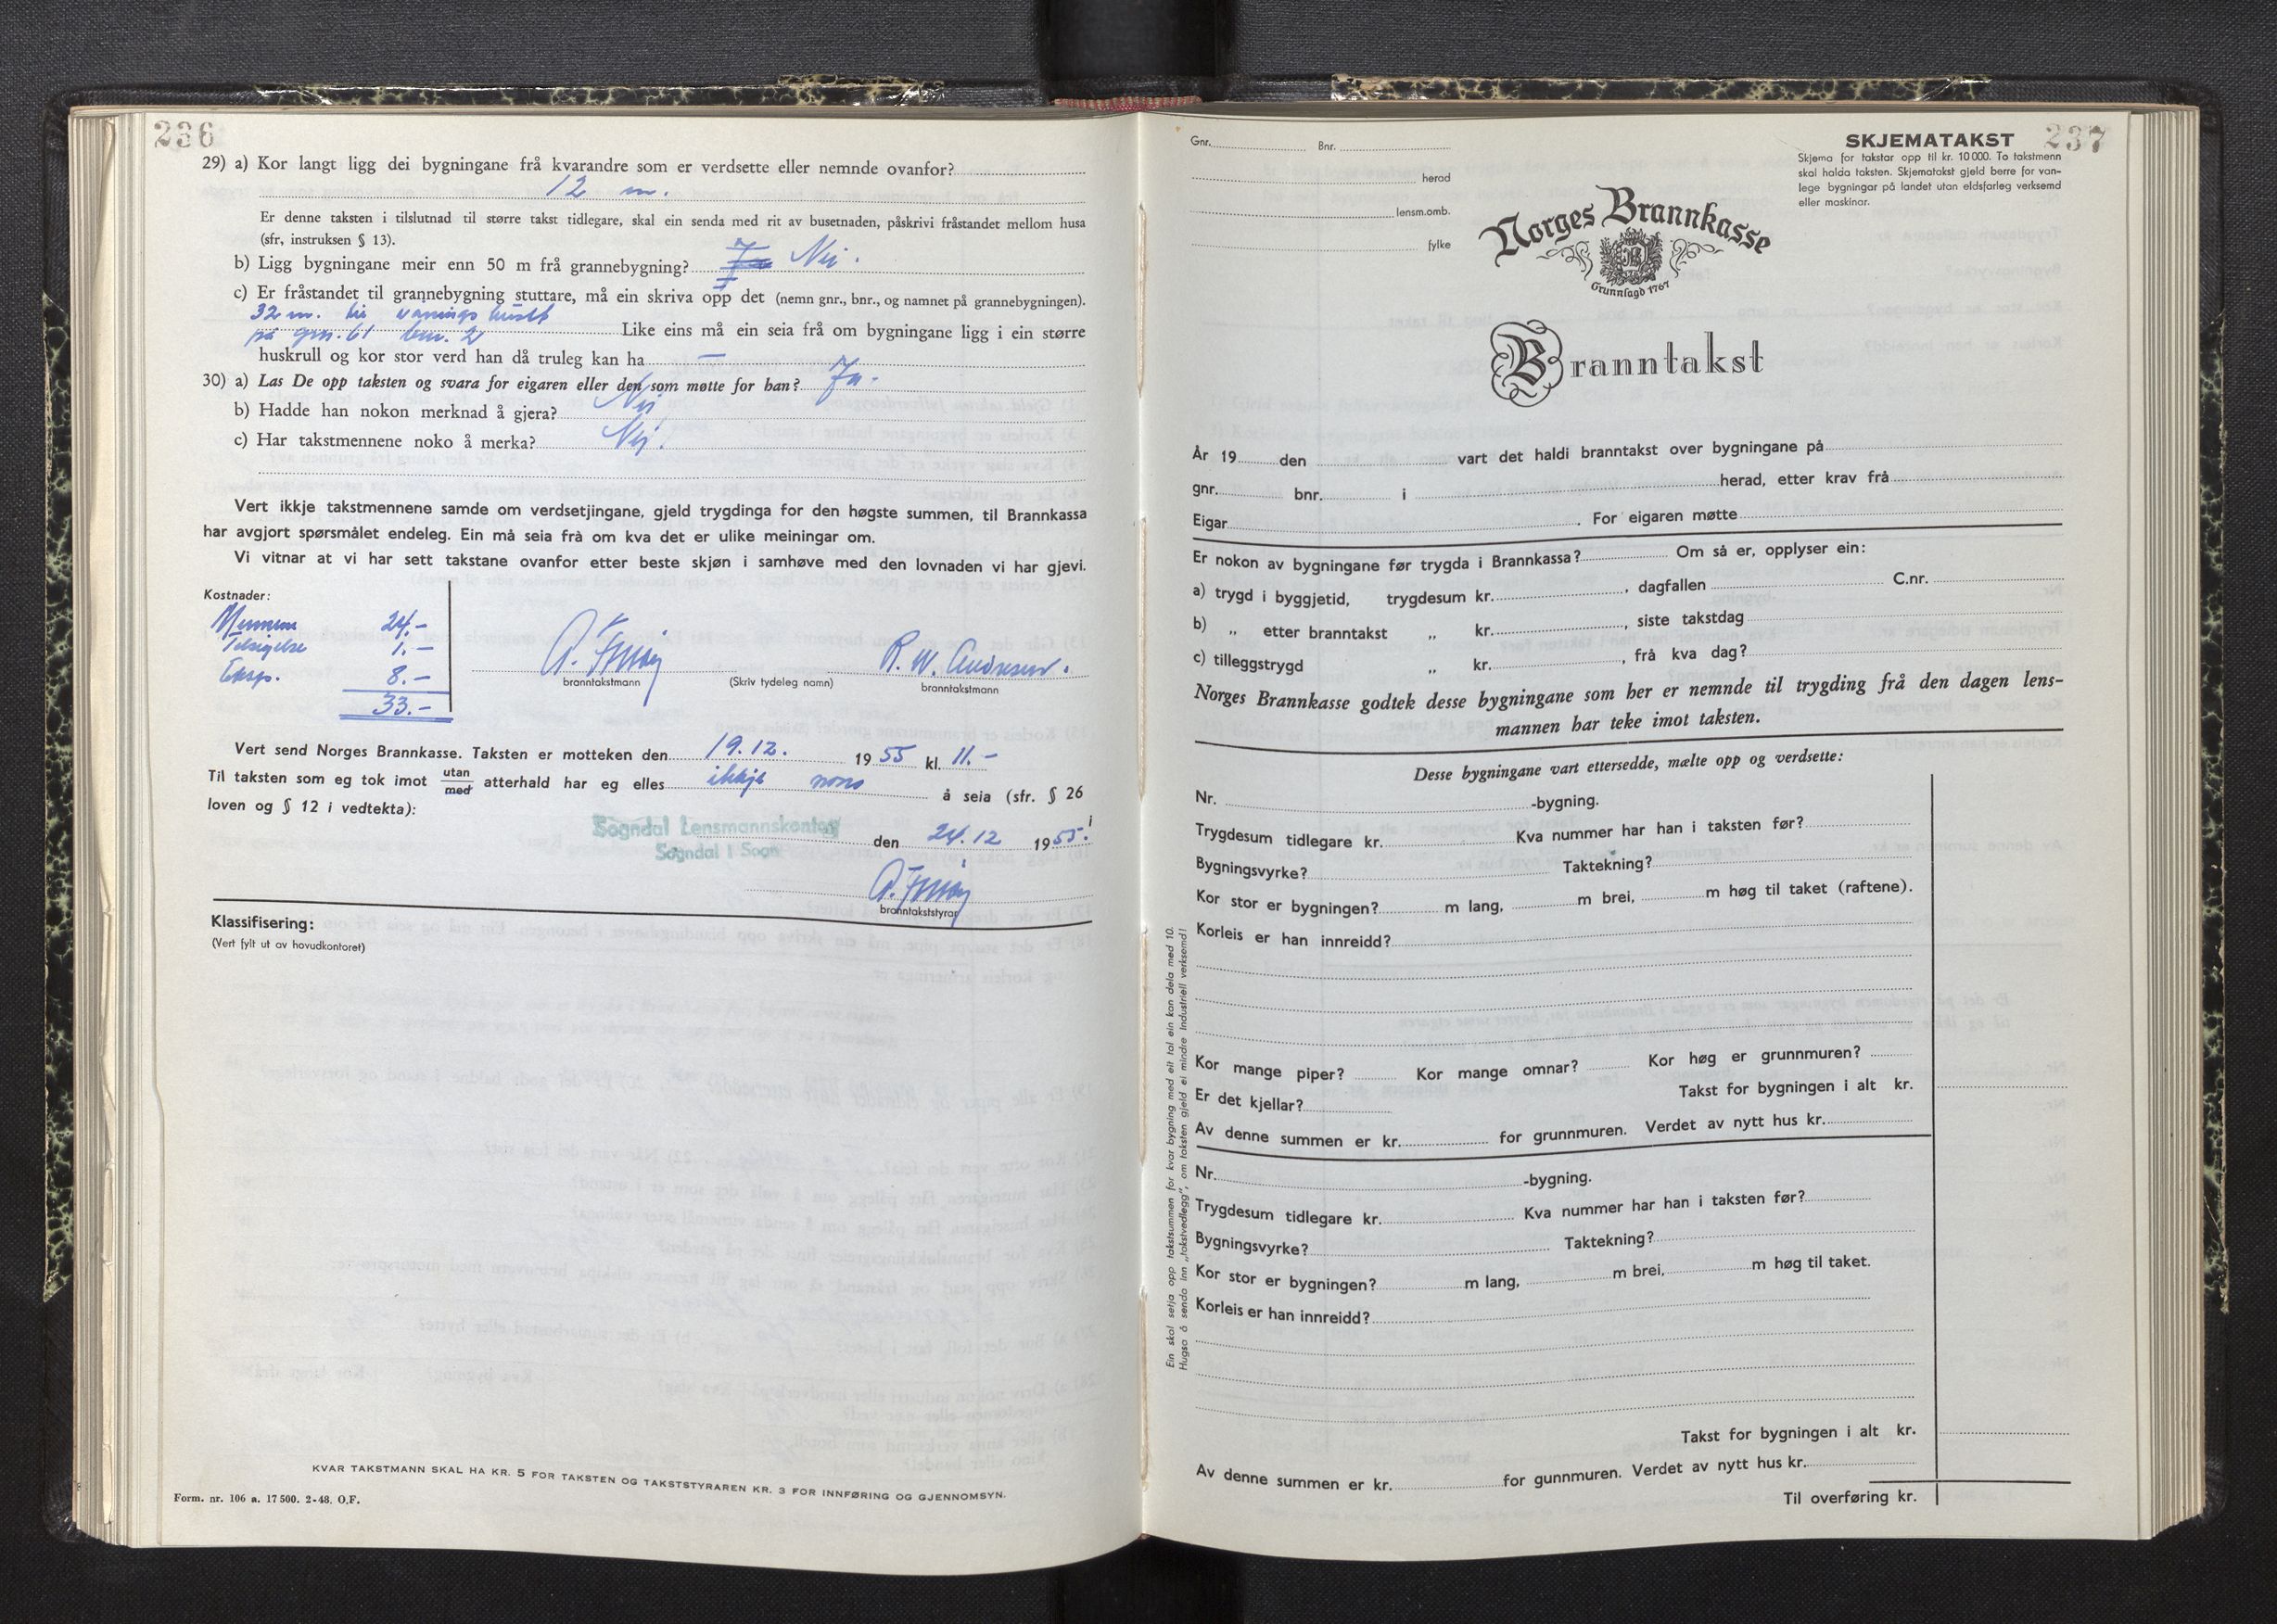 236
29) a) Kor langt ligg dei bygningane frå kvarandre som er verdsette eller nemnde ovanfor?
12 m.
Er denne taksten i tilslutnad til større takst tidlegare, skal ein senda med rit av busetnaden, påskrivi fråstandet mellom husa
(sfr, instruksen § 13).
b) Ligg bygningane meir enn 50 m frå grannebygning? Ja Nei.
c) Er fråstandet til grannebygning stuttare, må ein skriva opp det (nemn gnr., bnr., og namnet på grannebygningen).
32 m. til vånings huset
på gnr. 61 bnr. 2 Like eins må ein seia frå om bygningane ligg i ein større
huskrull og kor stor verd han då truleg kan ha —
30) a) Las De opp taksten og svara for eigaren eller den som møtte for han? Ja.
b) Hadde han nokon merknad å gjera? Nei
c) Har takstmennene noko å merka? Nei.
Vert ikkje takstmennene samde om verdsetjingane, gjeld trygdinga for den høgste summen, til Brannkassa
har avgjort spørsmålet endeleg. Ein må seia frå om kva det er ulike meiningar om.
Vi vitnar at vi har sett takstane ovanfor etter beste skjøn i samhøve med den lovnaden vi har gjevi.
Kostnader:
Mennene 24.-
Tilsigelse 1.-
Eksp. 8.-
33.-
R. W. Andresen.
branntakstmann (Skriv tydeleg namn) branntakstmann
Vert send Norges Brannkasse. Taksten er motteken den 19.12. 1955 kl. 11.-
Til taksten som eg tok imot utan/med atterhald har eg elles ikkje noko å seia (sfr. § 26
loven og § 12 i vedtekta):
Sogndal Lensmannskontor
Sogndal i Sogn
den 24.12 1955.
branntakststyrar
Klassifisering:
(Vert fylt ut av hovudkontoret)
KVAR TAKSTMANN SKAL HA KR. 5 FOR TAKSTEN OG TAKSTSTYRAREN KR. 3 FOR INNFØRING OG GJENNOMSYN.
Form. nr. 106 a. 17500. 2-48. O.F.
237
Gnr. Bnr.
herad
lensm.omb.
fylke
SKJEMATAKST
Skjema for takstar opp til kr. 10 000. To takstmenn
skal halda taksten. Skjematakst gjeld berre for van-
lege bygningar på landet utan eldsfarleg verksemd
eller maskinar.
Norges Brannkasse
Grunnlagd 1767
Branntakst
År 19 den vart det haldi branntakst over bygningane på
gnr. bnr. i herad, etter krav frå
Eigar. For eigaren møtte
Er nokon av bygningane før trygda i Brannkassa? Om så er, opplyser ein:
a) trygd i byggjetid, trygdesum kr. , dagfallen C.nr.
b) „ etter branntakst „ kr. , siste takstdag
c) tilleggstrygd „ kr. , frå kva dag?
Norges Brannkasse godtek desse bygningane som her er nemnde til trygding frå den dagen lens-
mannen har teke imot taksten.
Desse bygningane vart ettersedde, mælte opp og verdsette:
Nr. -bygning.
Trygdesum tidlegare kr. Kva nummer har han i taksten før?
Bygningsvyrke? Taktekning?
Kor stor er bygningen? m lang, m brei, m høg til taket (raftene).
Korleis er han innreidd?
Kor mange piper? Kor mange omnar? Kor høg er grunnmuren?
Er det kjellar? Takst for bygningen i alt kr.
Av denne summen er kr. for grunnmuren. Verdet av nytt hus kr.
Nr. -bygning.
Trygdesum tidlegare kr. Kva nummer har han i taksten før?
Bygningsvyrke? Taktekning?
Kor stor er bygningen? m lang, m brei, m høg til taket.
Korleis er han innreidd?
Takst for bygningen i alt kr.
Av denne summen er kr. for gunnmuren. Verdet av nytt hus kr.
Til overføring kr.
Ein skal setja opp takstsummen for kvar bygning med eit tal ein kan dela med 10.
Hugsa å senda inn „takstvedlegg”, om taksten gjeld ei mindre industriell verksemd!